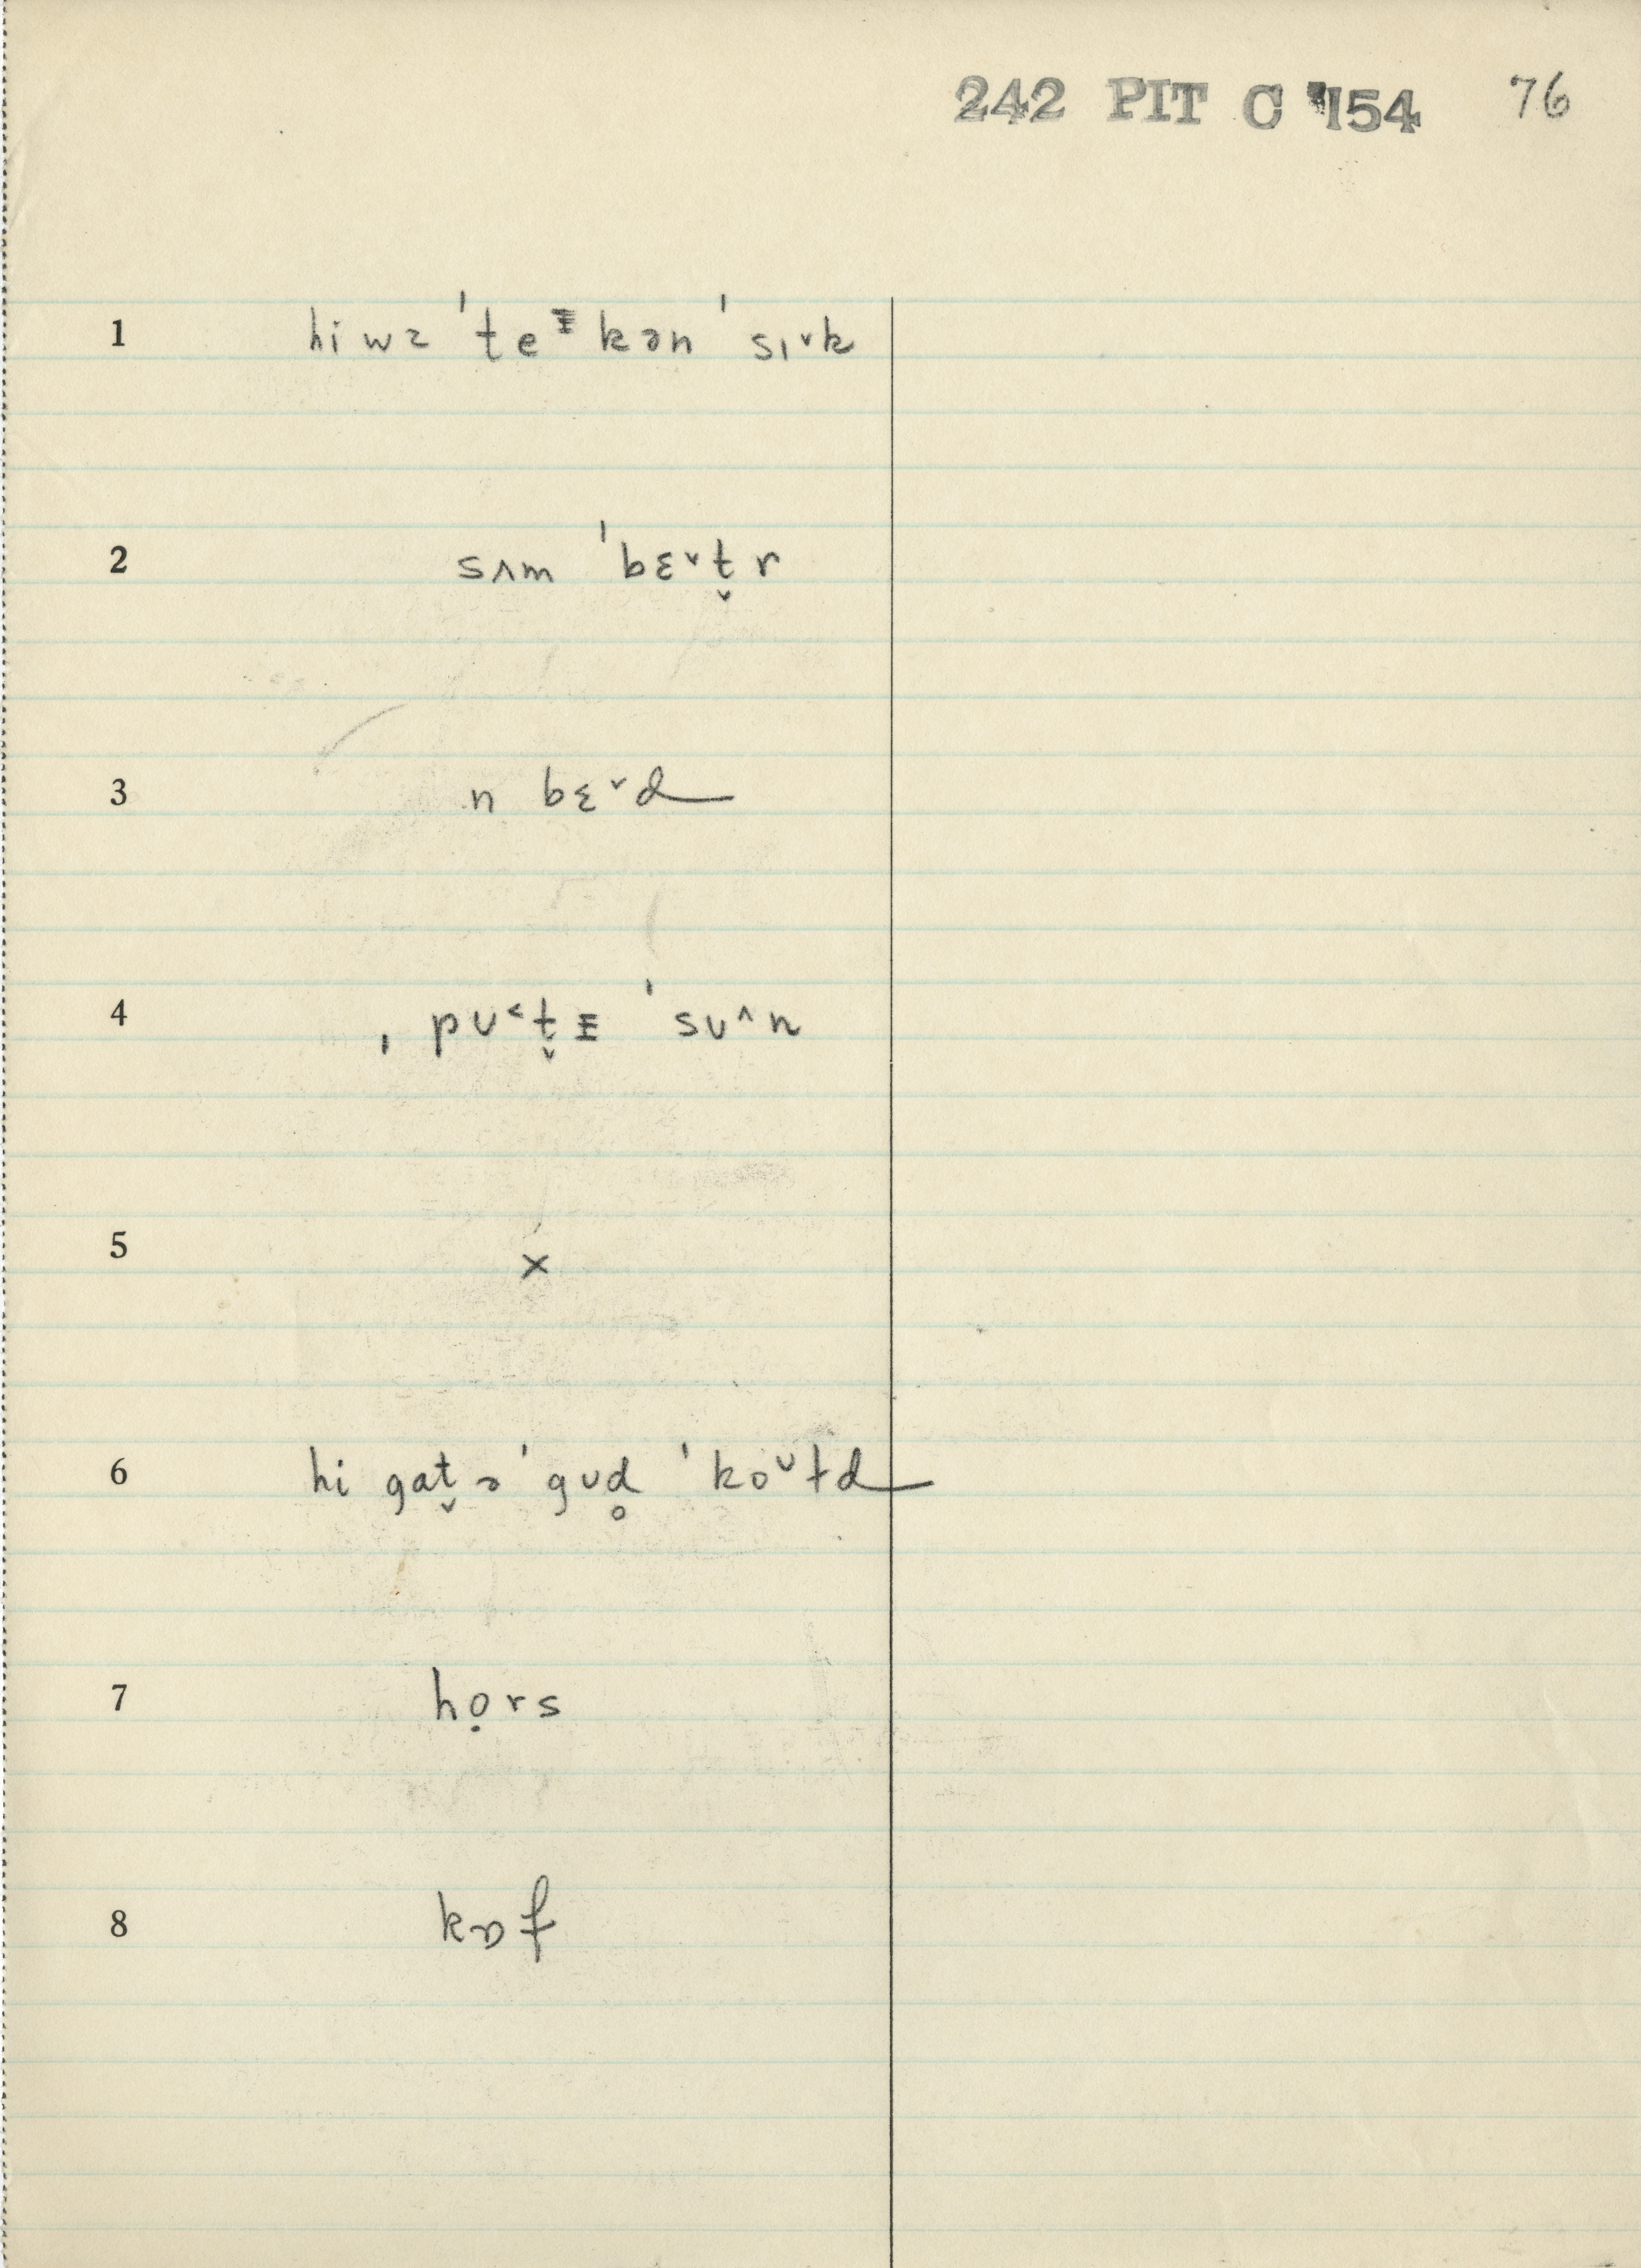 242 PIT C 154 76
1 hi wɜ ˈteᵻkən ˈsɪ˅k
2 sʌm ˈbɛ˅t̬r
3 n bɛ˅d
4 ˌpʊ˂t̬ᵻ ˈsʊ˄n
5 ×
6 hi gat̬ ə ˈgʊd̥ ˈkoᴜɫd
7 họrs
8 kɒf